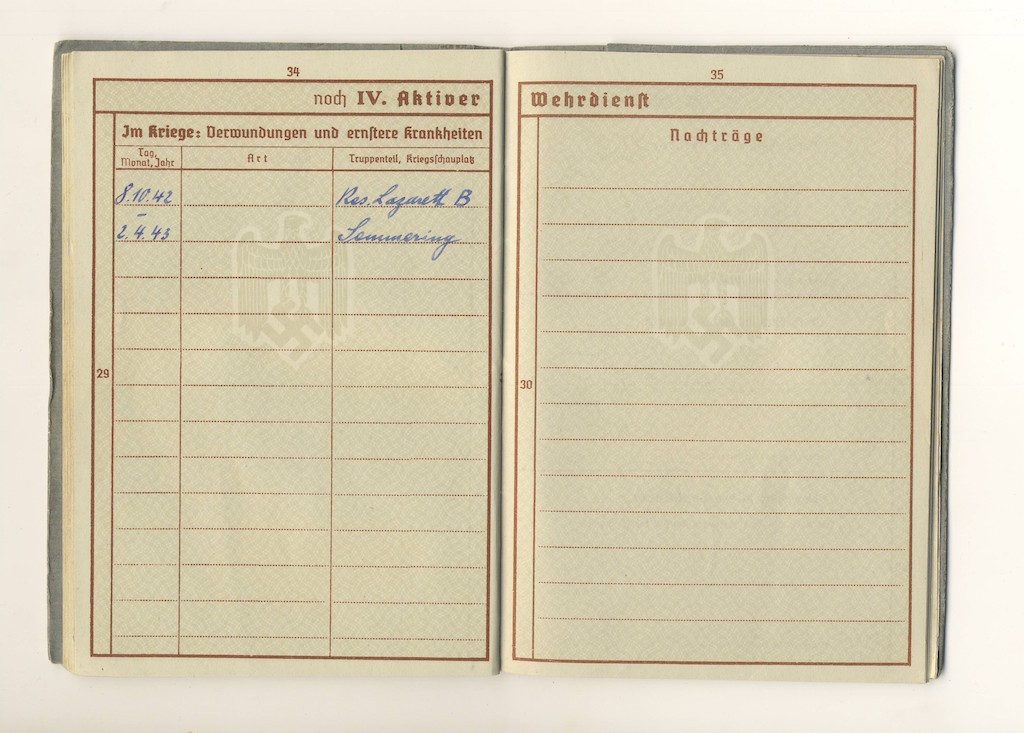 34
noch IV. Aktiver
Im Kriege: Verwundungen und ernstere Krankheiten
Tag, Monat, Jahr
Art
Truppenteil, Kriegsschauplatz
8.10.42
Res. Lazarett B
–
2.4.43
Semmering
29
35
Wehrdienst
Nachträge
30